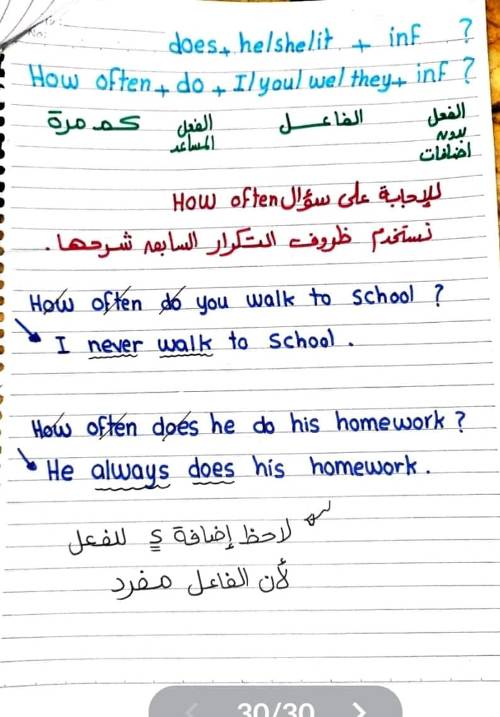 does + he/she/it + inf ?
How often + do + I/you/we/they + inf ?
كم مرة الفعل المساعد الفاعل الفعل بدون اضافات
للإجابة على سؤال How often
نستخدم ظروف التكرار السابق شرحها .
How often do you walk to school ?
I never walk to school .
How often does he do his homework ?
He always does his homework .
لاحظ إضافة s للفعل
لأن الفاعل مفرد
30/30